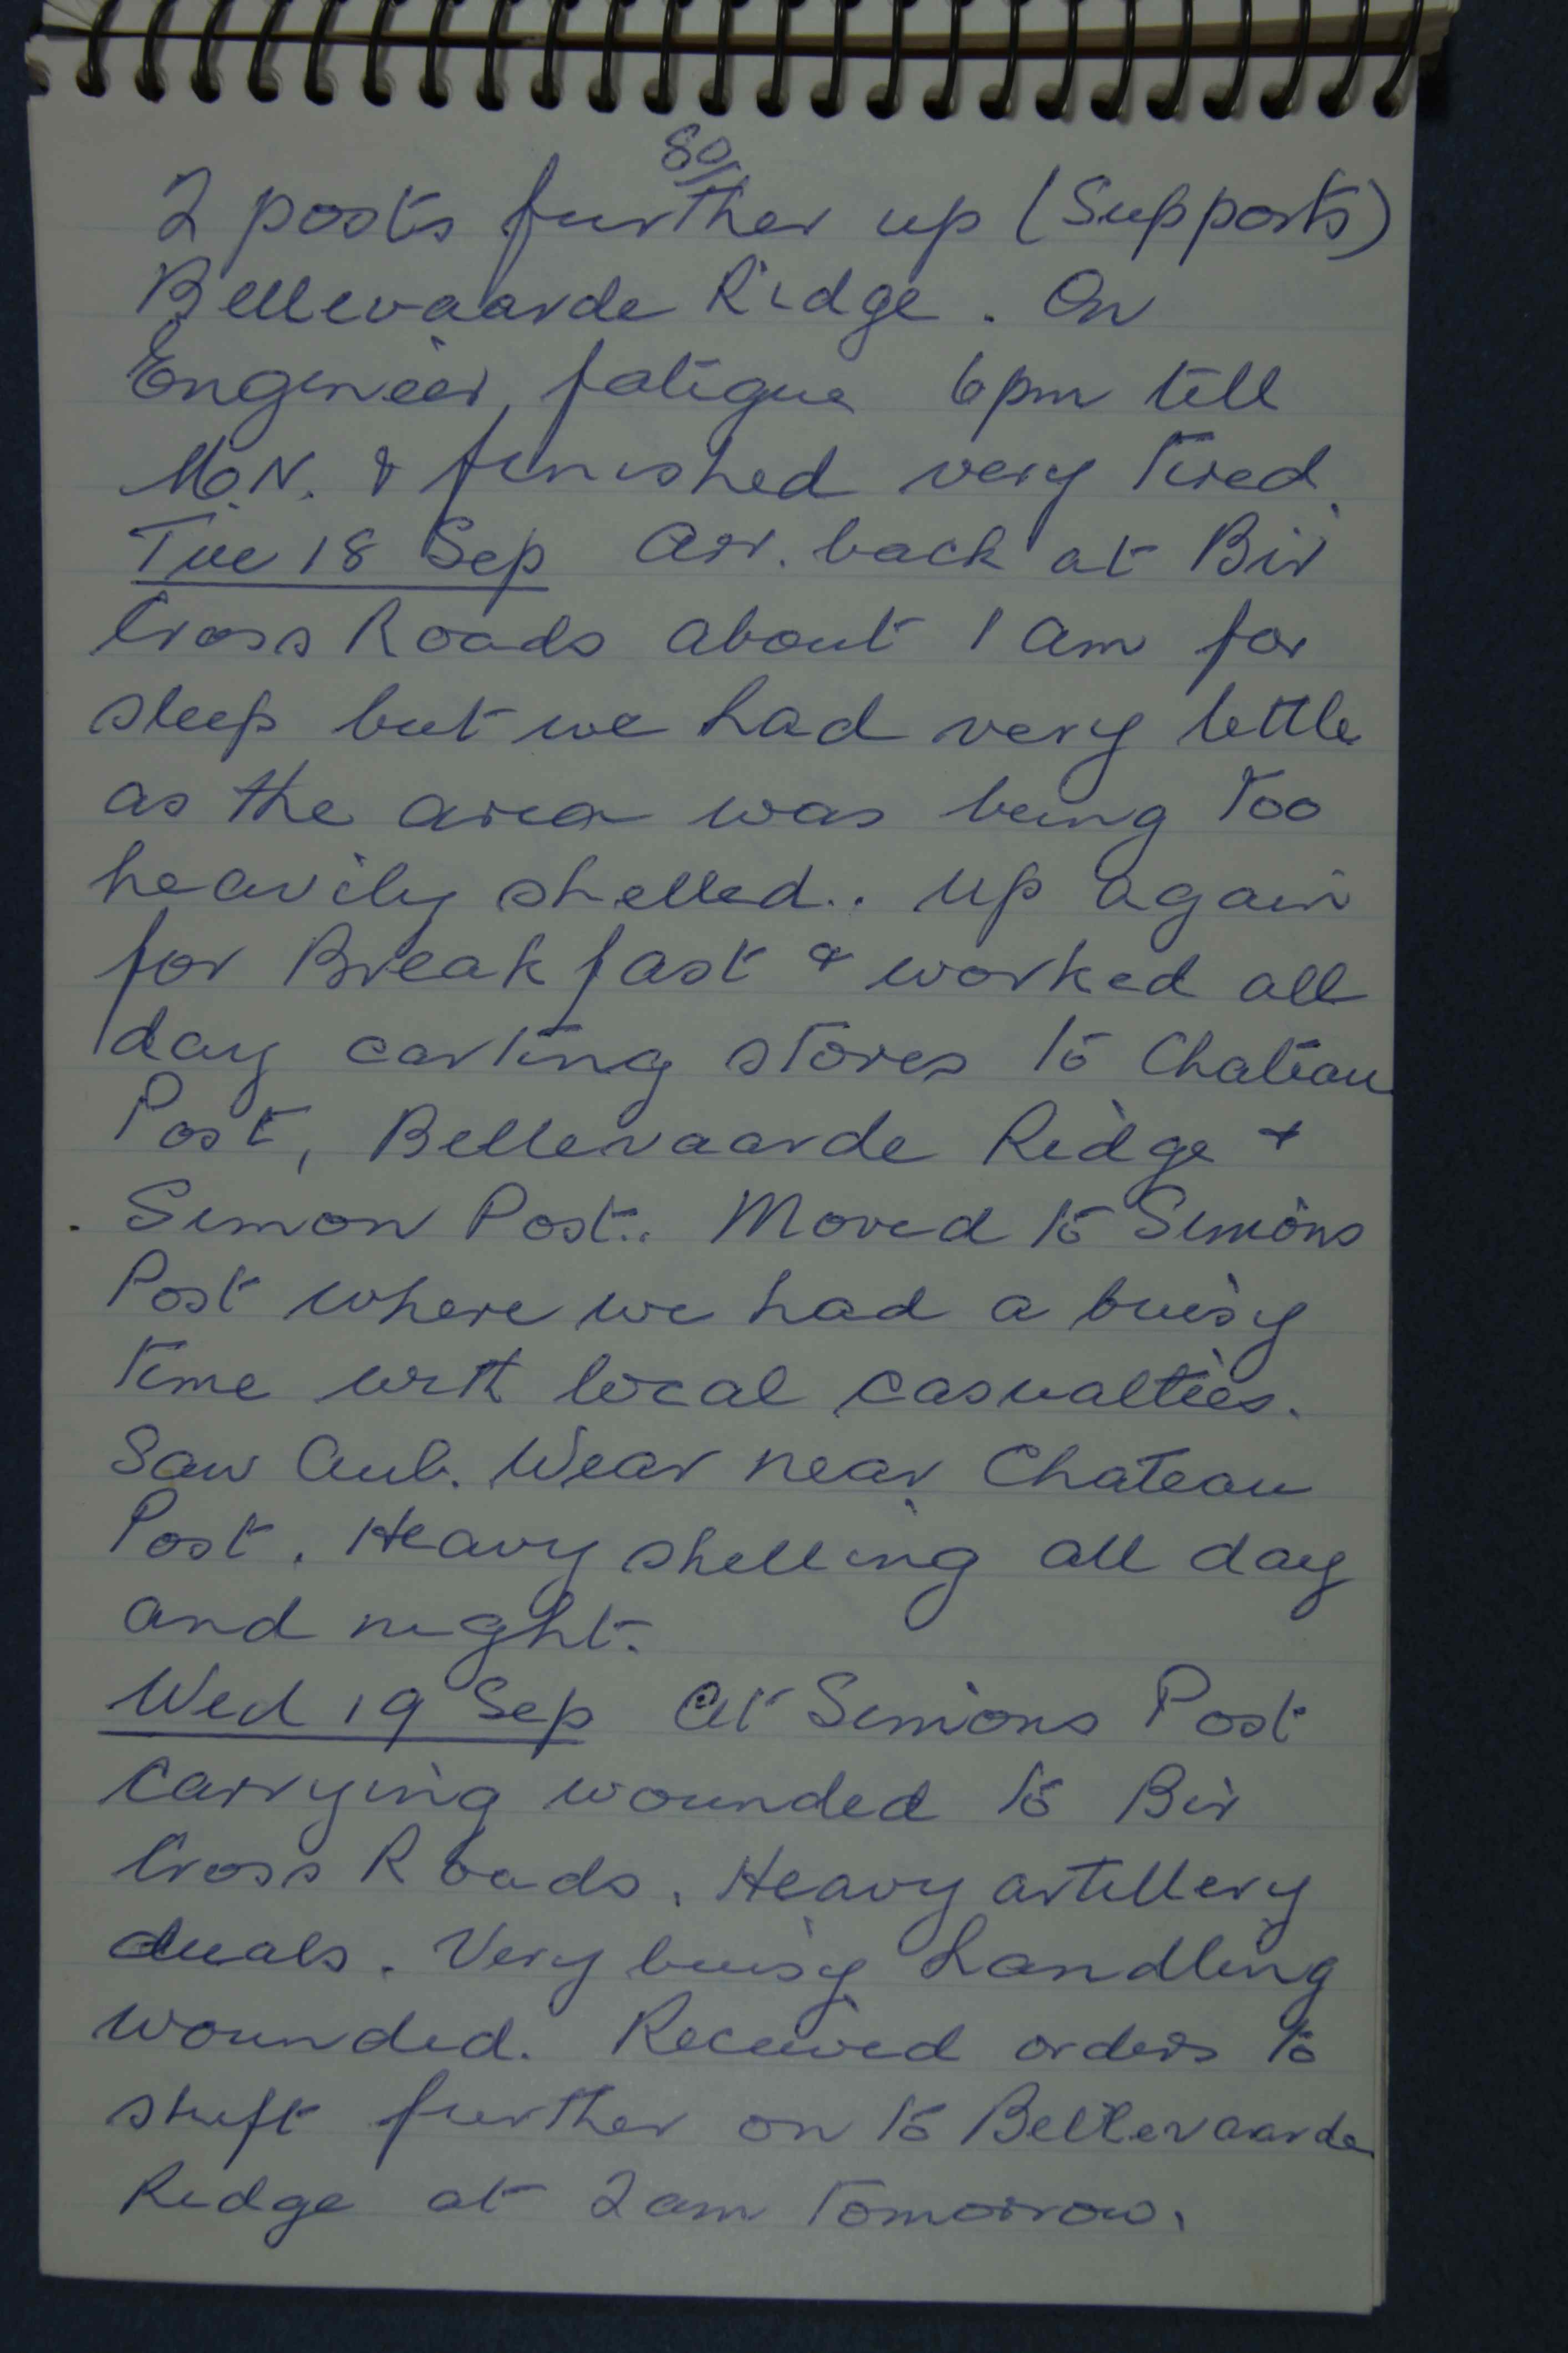 80/
2 posts further up (Supports)
Bellevaarde Ridge. On
Engineer, fatigue 6pm till
M.N. & finished very tired.
Tue 18 Sep Arr. back at Bir
Cross Roads about 1 am for
sleep but we had very little
as the area was being too
heavily shelled.. up again
for Breakfast & worked all
day carting stores to Chateau
Post, Bellevaarde Ridge +
Simon Post.. Moved to Simons
Post where we had a buisy
time with local casualties.
Saw Aub. Wear near Chateau
Post. Heavy shelling all day
and night.
Wed 19 Sep At Simons Post
carrying wounded to Bir
Cross Roads. Heavy artillery
duals. Very buisy handling
wounded. Received orders to
shift further on to Bellevaarde
Ridge at 2am tomorrow.